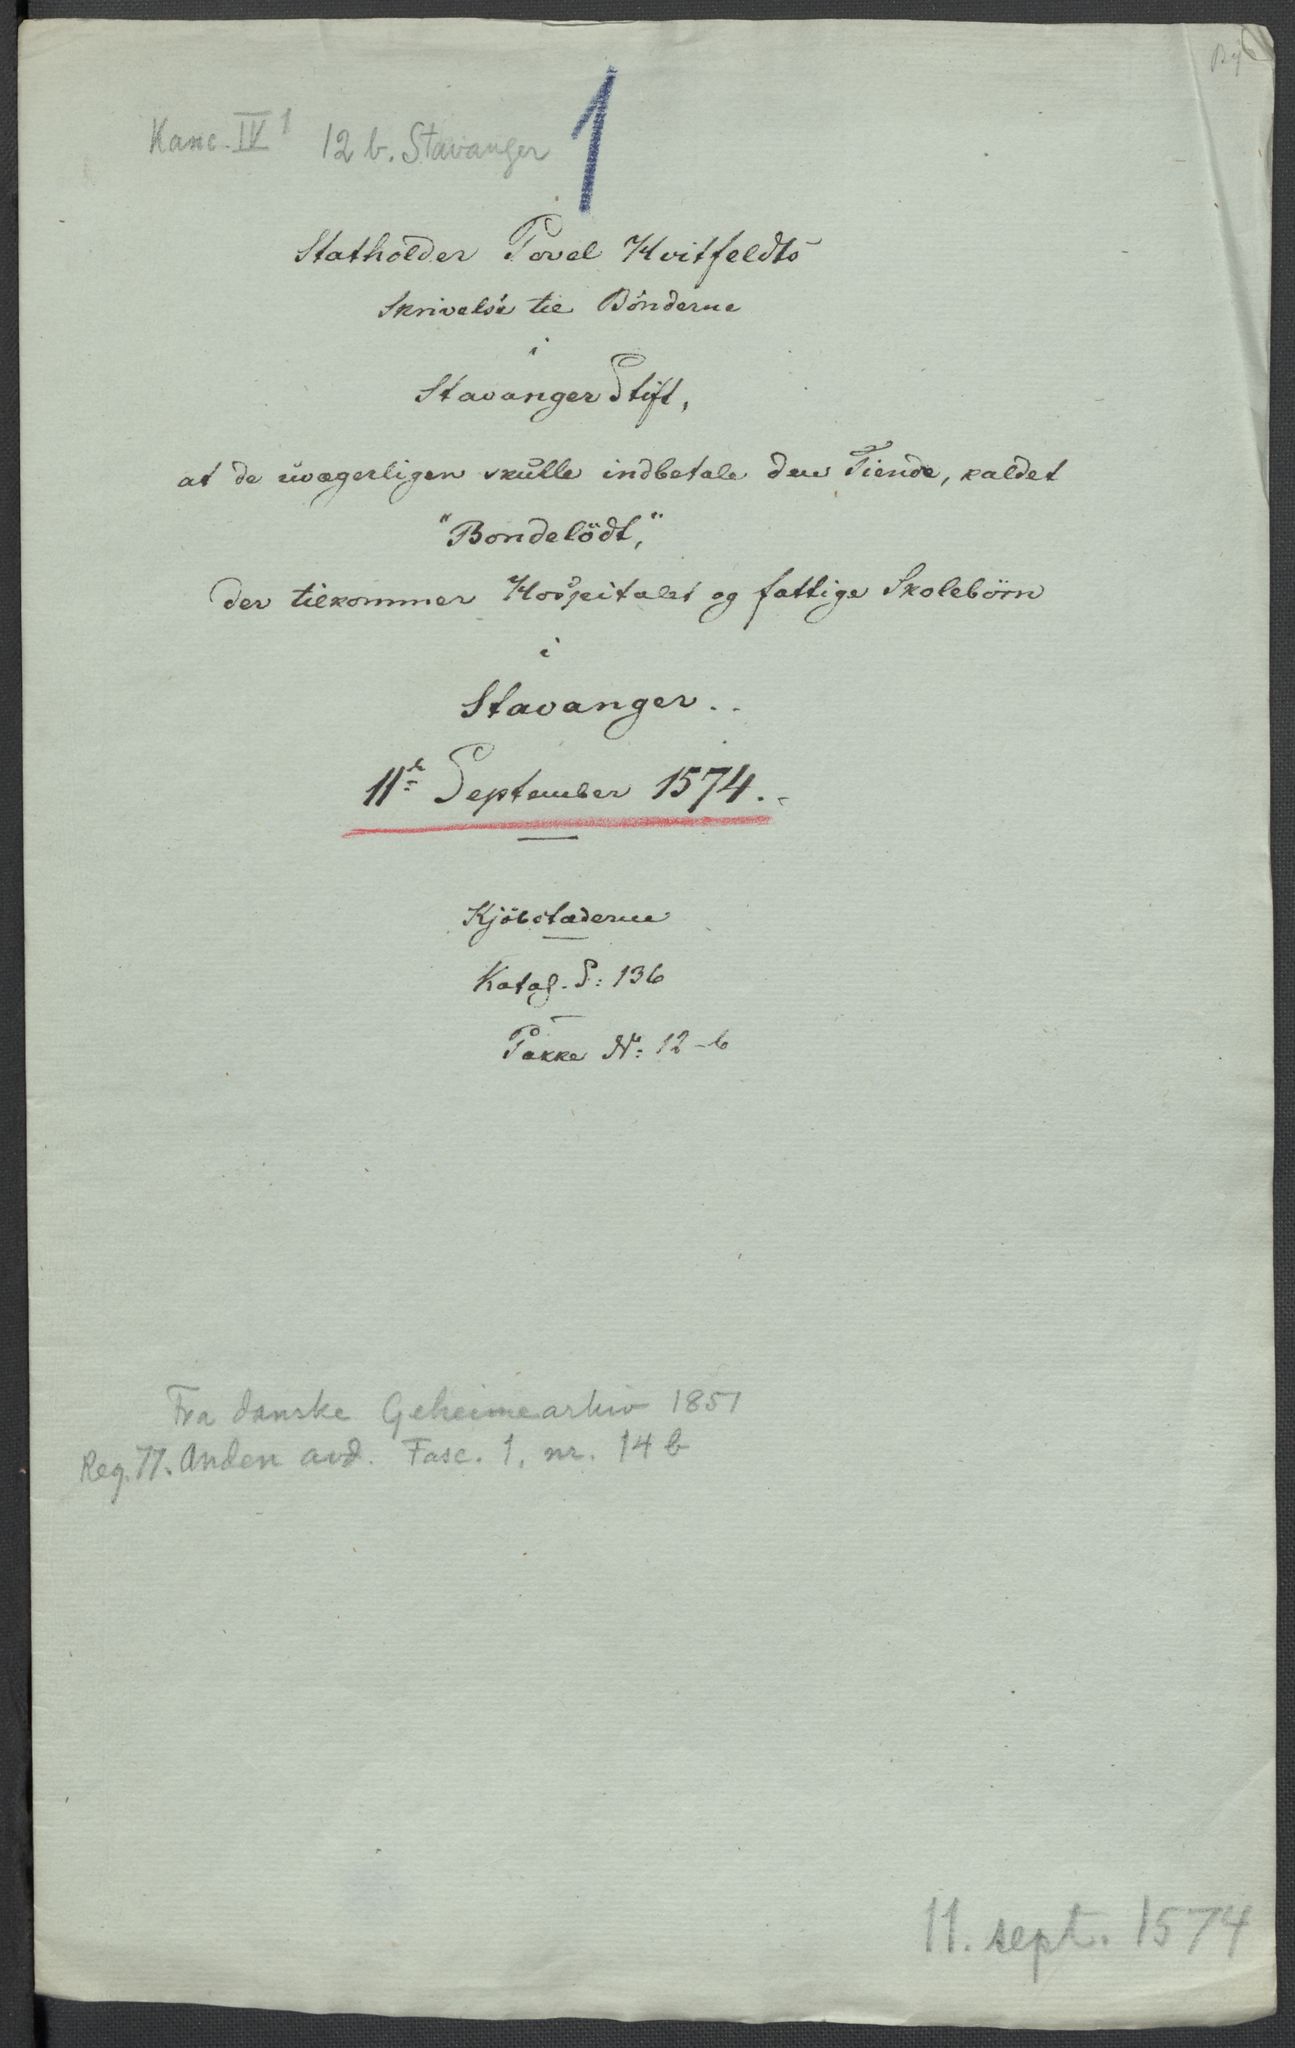 Kanc. IV 1 12 b. Stavanger
1
Statholder Povel Hvitfeldts
Skrivelse til Bönderne
i
Stavanger Stift,
at de uvægerligen skulle indbetale den Tiende, kaldet
"Bondelödt,"
der tilkommer Hospitalet og fattige Skolebörn
i
Stavanger..
11te September 1574.
Kjöbstæderne
Katal. S: 136
Pakke No: 12-b
Fra danske Geheimearkiv 1851
Reg. 77. Anden avd. Fasc. 1, nr. 14 b
11. sept. 1574